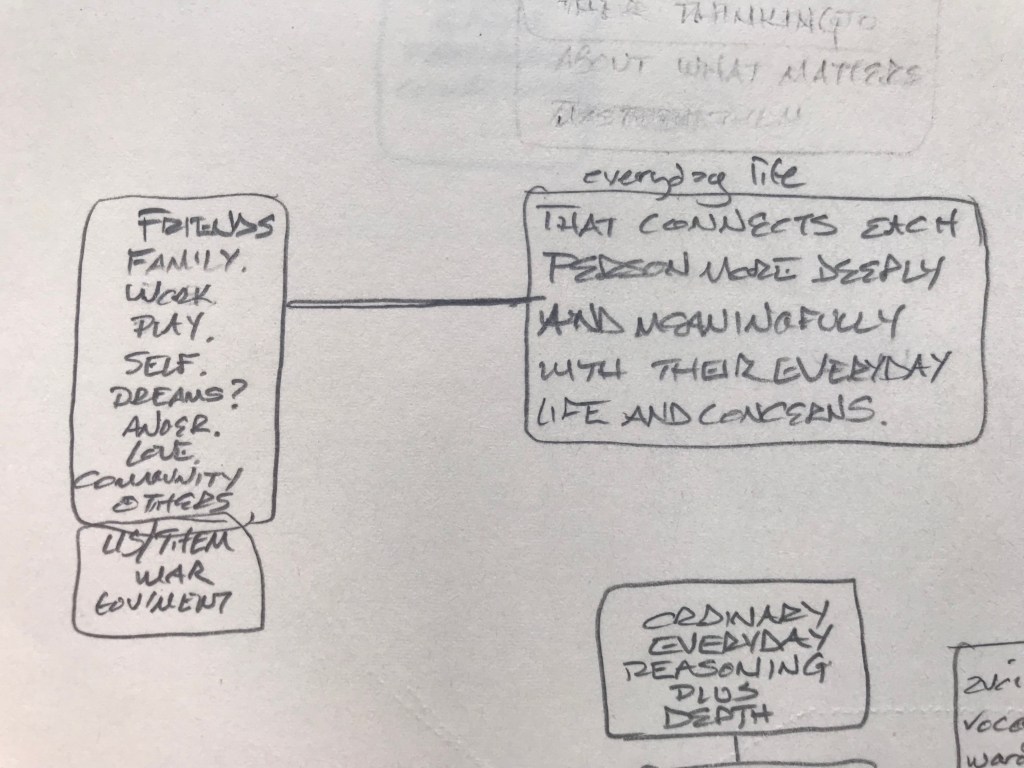 THINKING TO
ABOUT WHAT MATTERS
everyday life
FRIENDS
FAMILY.
WORK
PLAY.
SELF.
DREAMS?
ANGER.
LOVE.
COMMUNITY
OTHERS
US/THEM
WAR
GOV'MENT
THAT CONNECTS EACH
PERSON MORE DEEPLY
AND MEANINGFULLY
WITH THEIR EVERYDAY
LIFE AND CONCERNS.
ORDINARY
EVERYDAY
REASONING
PLUS
DEPTH